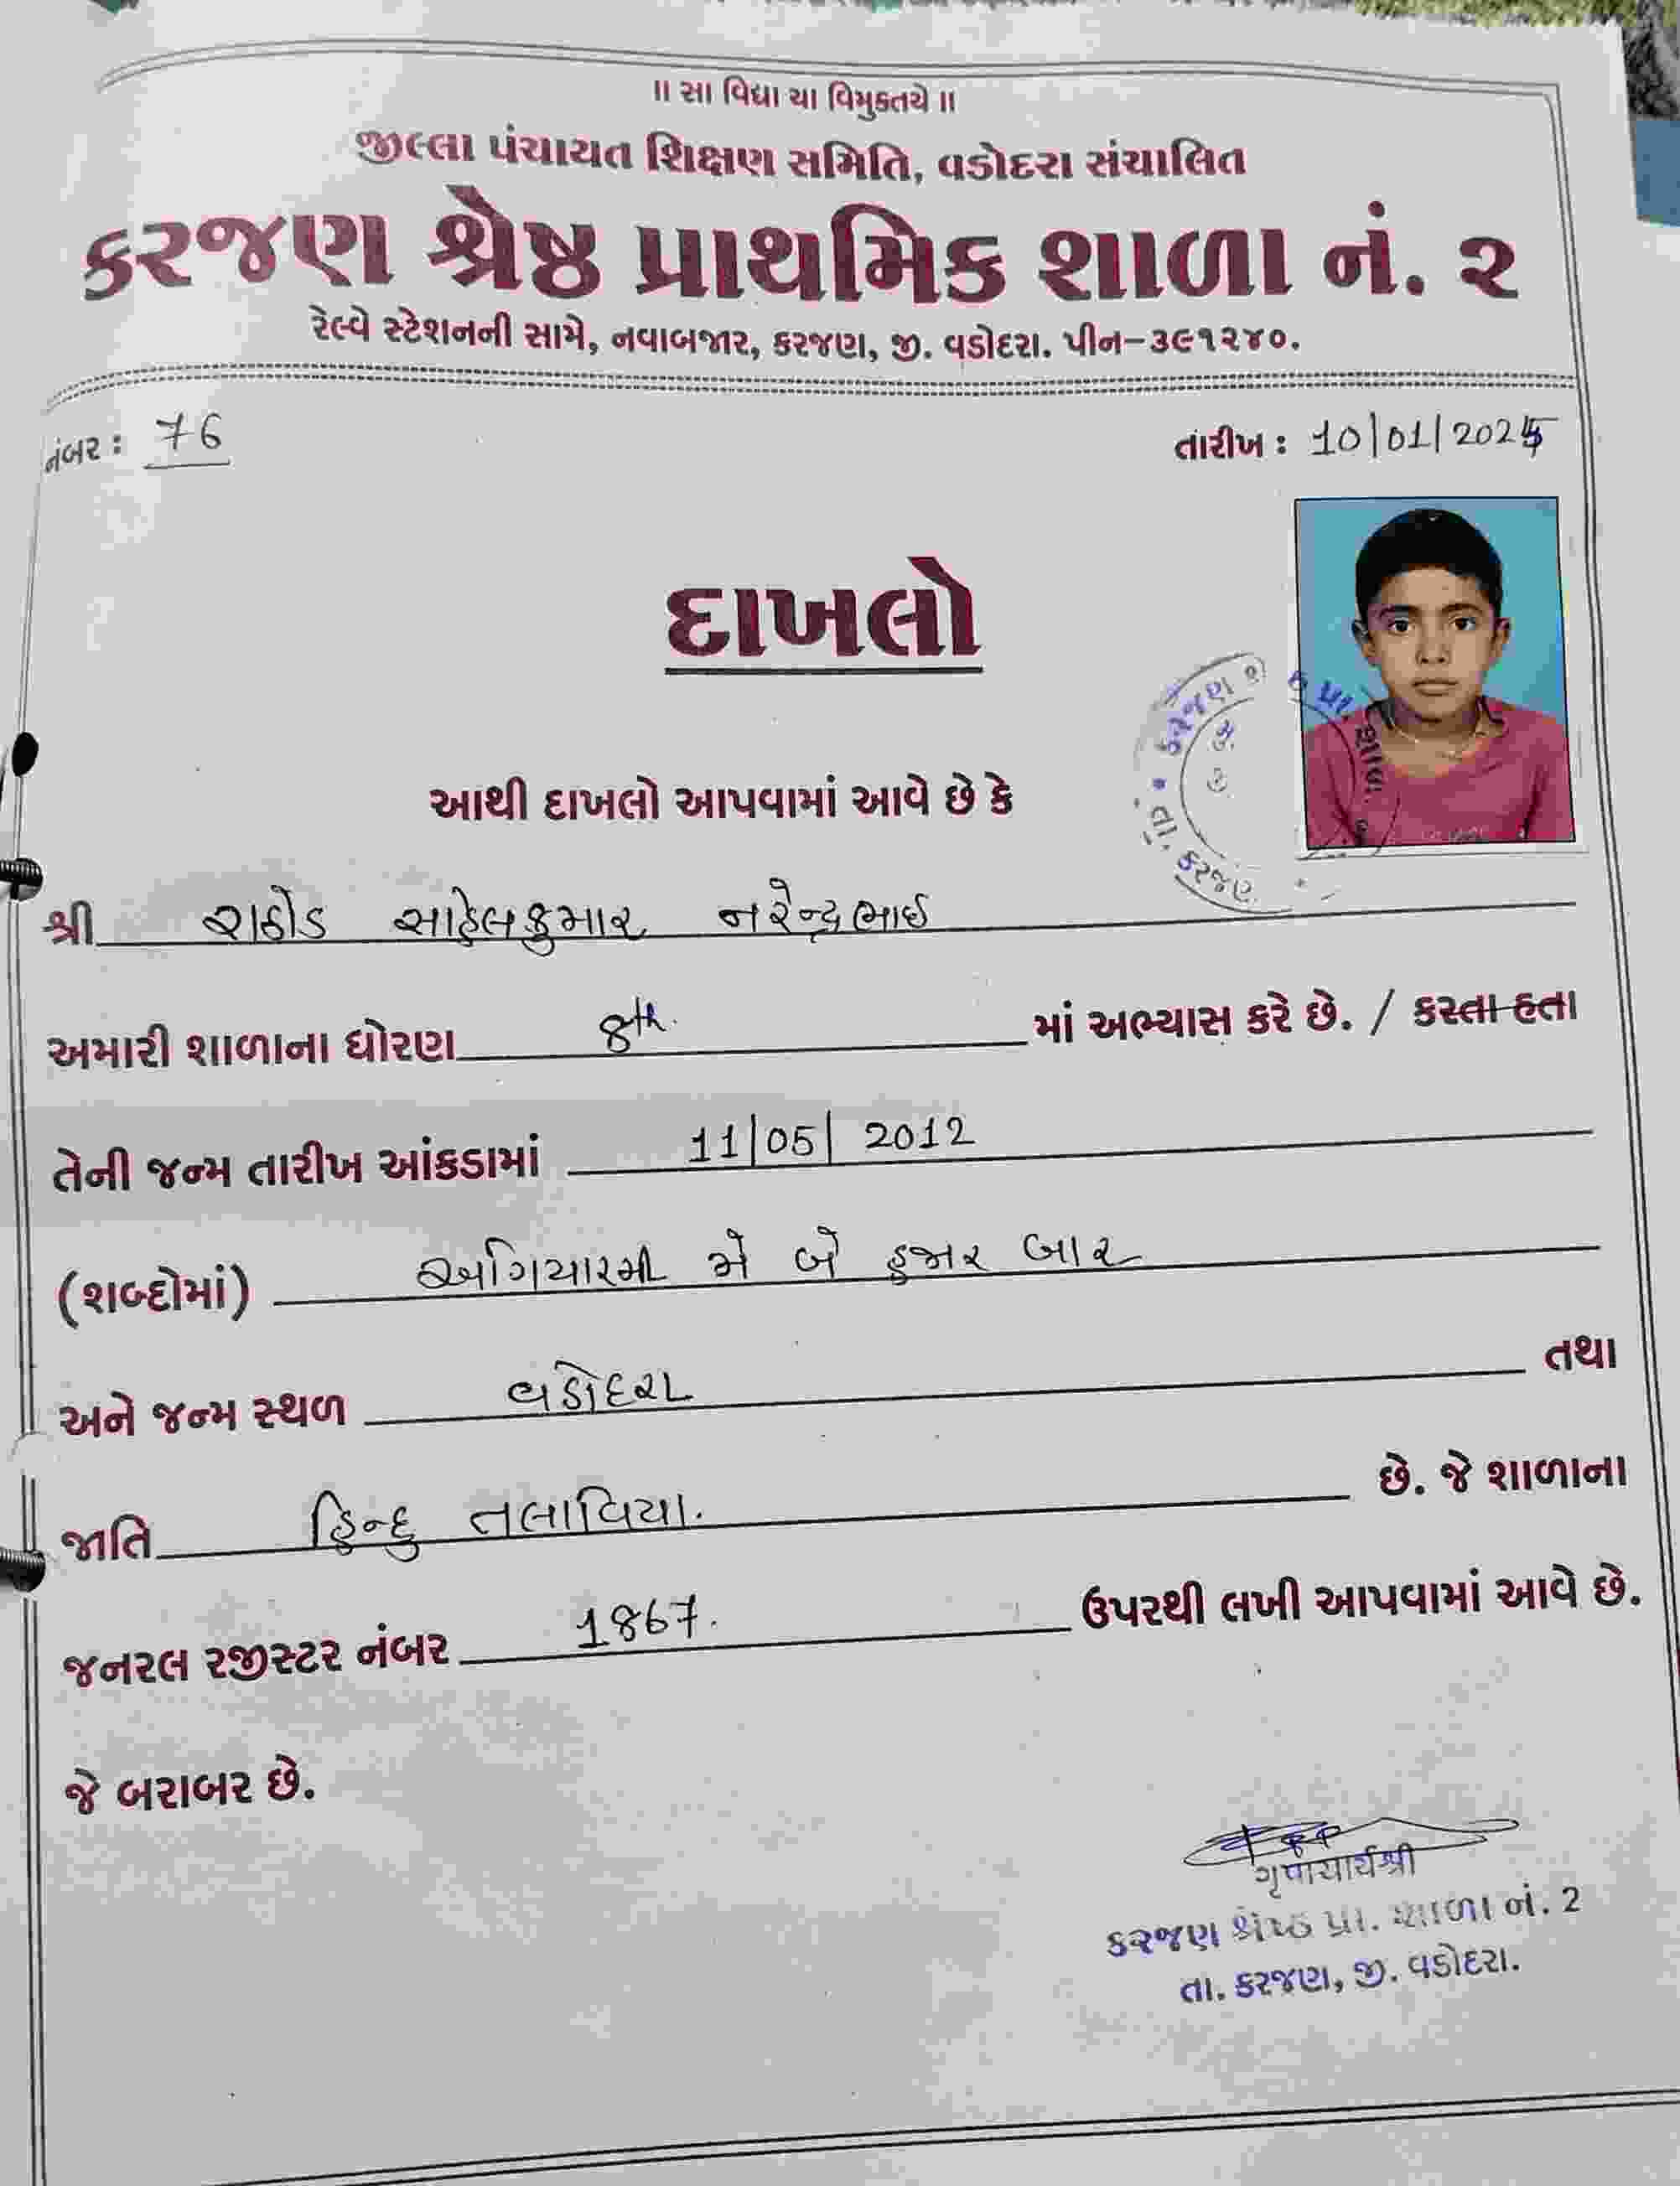 ॥ સા વિદ્યા યા વિમુક્તયે ॥
જીલ્લા પંચાયત શિક્ષણ સમિતિ, વડોદરા સંચાલિત
કરજણ શ્રેષ્ઠ પ્રાથમિક શાળા નં. ૨
રેલ્વે સ્ટેશનની સામે, નવાબજાર, કરજણ, જી. વડોદરા. પીન-૩૯૧૨૪૦.
નંબર : 76 તારીખ : 10/01/2025
દાખલો
આથી દાખલો આપવામાં આવે છે કે
શ્રી રાઠોડ સાહેલકુમાર નરેન્દ્રભાઈ
અમારી શાળાના ધોરણ 8th. માં અભ્યાસ કરે છે. / કરતા હતા
તેની જન્મ તારીખ આંકડામાં 11/05/2012
(શબ્દોમાં) અગિયારમી મે બે હજાર બાર
અને જન્મ સ્થળ વડોદરા તથા
જાતિ હિન્દુ તલાવિયા. છે. જે શાળાના
જનરલ રજીસ્ટર નંબર 1867. ઉપરથી લખી આપવામાં આવે છે.
જે બરાબર છે.
કરજણ શ્રેષ્ઠ પ્રા. શાળા નં. 2
તા. કરજણ, જી. વડોદરા.